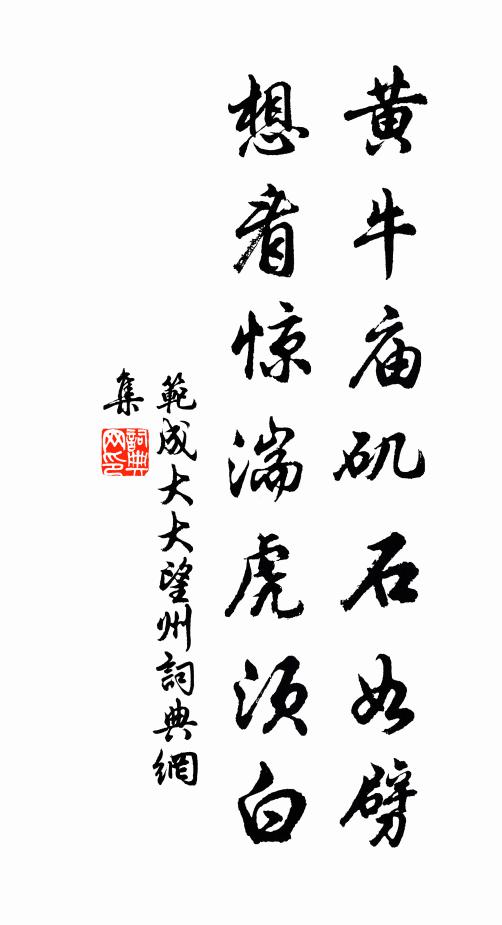 黄牛庙矶石如劈
想看惊湍虎须白
範成大大望州詞典網
集
詞典
网印